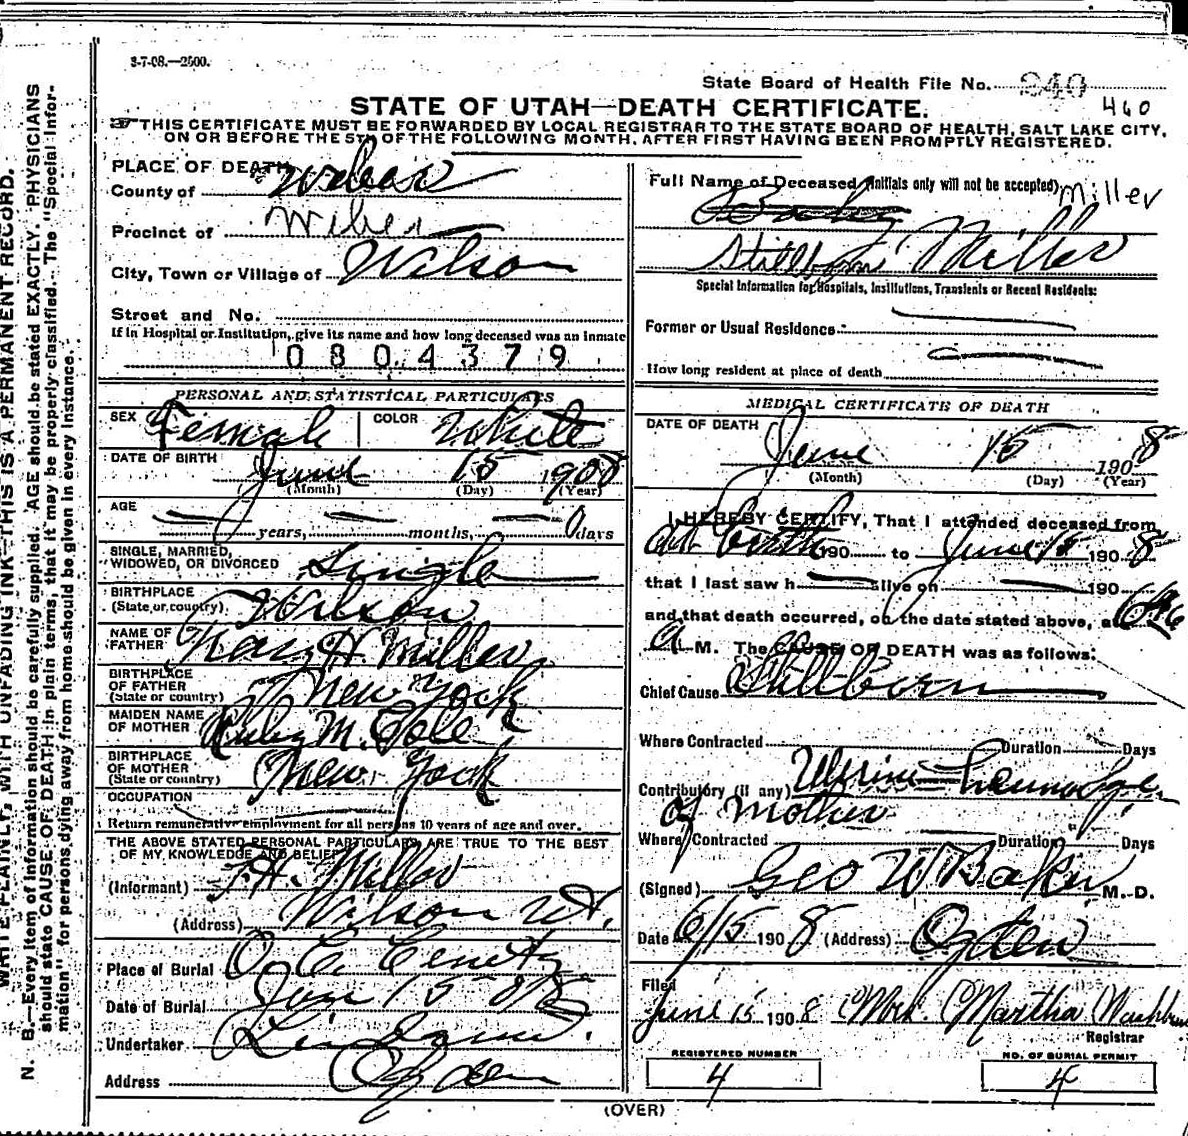 3-7-08.—2500.
State Board of Health File No. 240
460
STATE OF UTAH—DEATH CERTIFICATE.
THIS CERTIFICATE MUST BE FORWARDED BY LOCAL REGISTRAR TO THE STATE BOARD OF HEALTH, SALT LAKE CITY,
ON OR BEFORE THE 5TH OF THE FOLLOWING MONTH, AFTER FIRST HAVING BEEN PROMPTLY REGISTERED.
PLACE OF DEATH
County of Weber
Precinct of Wilson
City, Town or Village of Wilson
Street and No.
If in Hospital or Institution, give its name and how long deceased was an inmate
0804379
PERSONAL AND STATISTICAL PARTICULARS
SEX Female COLOR White
DATE OF BIRTH June 15 1908
(Month) (Day) (Year)
AGE
years, months, 0 days
SINGLE, MARRIED,
WIDOWED, OR DIVORCED Single
BIRTHPLACE
(State or country) Wilson
NAME OF
FATHER H. Miller
BIRTHPLACE
OF FATHER
(State or country) New York
MAIDEN NAME
OF MOTHER Ruby M. Cole
BIRTHPLACE
OF MOTHER
(State or country) New York
OCCUPATION
Return remunerative employment for all persons 10 years of age and over.
THE ABOVE STATED PERSONAL PARTICULARS ARE TRUE TO THE BEST
OF MY KNOWLEDGE AND BELIEF
(Informant) F. H. Miller
(Address) Wilson Ut.
Place of Burial O. C. Cemetry
Date of Burial June 15 08
Undertaker Lindquist
Address Ogden
Full Name of Deceased (Initials only will not be accepted) Miller
Baby
Stillborn Miller
Special Information for Hospitals, Institutions, Transients or Recent Residents:
Former or Usual Residence
How long resident at place of death
MEDICAL CERTIFICATE OF DEATH
DATE OF DEATH
June 15 1908
(Month) (Day) (Year)
I HEREBY CERTIFY, That I attended deceased from
at birth 190 to June 15 1908
that I last saw h alive on 190
and that death occurred, on the date stated above, at 6
A M. The CAUSE OF DEATH was as follows:
Chief Cause Stillborn
Where Contracted Duration Days
Contributory (if any) Uterine hemorhge
of Mother
Where Contracted Duration Days
(Signed) Geo W Baker M. D.
Date 6/15 1908 (Address) Ogden
Filed
June 15 1908 Mrs. Martha
Registrar
REGISTERED NUMBER
4
NO. OF BURIAL PERMIT
4
(OVER)
WRITE PLAINLY, WITH UNFADING INK—THIS IS A PERMANENT RECORD.
N. B.—Every item of information should be carefully supplied. AGE should be stated EXACTLY. PHYSICIANS
should state CAUSE OF DEATH in plain terms, that it may be properly classified. The "Special Infor-
mation" for persons dying away from home should be given in every instance.